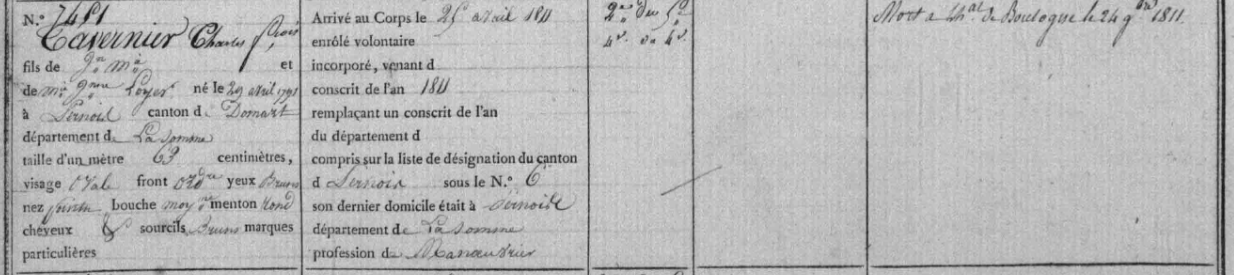 N.° 7451
Tavernier Charles frois
fils de Jn ma et
de Me Jnne Loyer né le 29 avril 1791
à Pernoid canton d Domart
département d La Somme
taille d'un mètre 63 centimètres,
visage Oval front ordre yeux Bruns
nez pointu bouche moye menton Rond
cheveux & sourcils Bruns marques
particulières
Arrivé au Corps le 25 avril 1811
enrôlé volontaire
incorporé, venant d
conscrit de l'an 1811
remplaçant un conscrit de l'an
du département d
compris sur la liste de désignation du canton
d sous le N.° 6
son dernier domicile était à
département de La Somme
profession de Manouvrier
2.on du 5.e
4.n du 4.n
Mort a de Boulogne le 24 9bre 1811